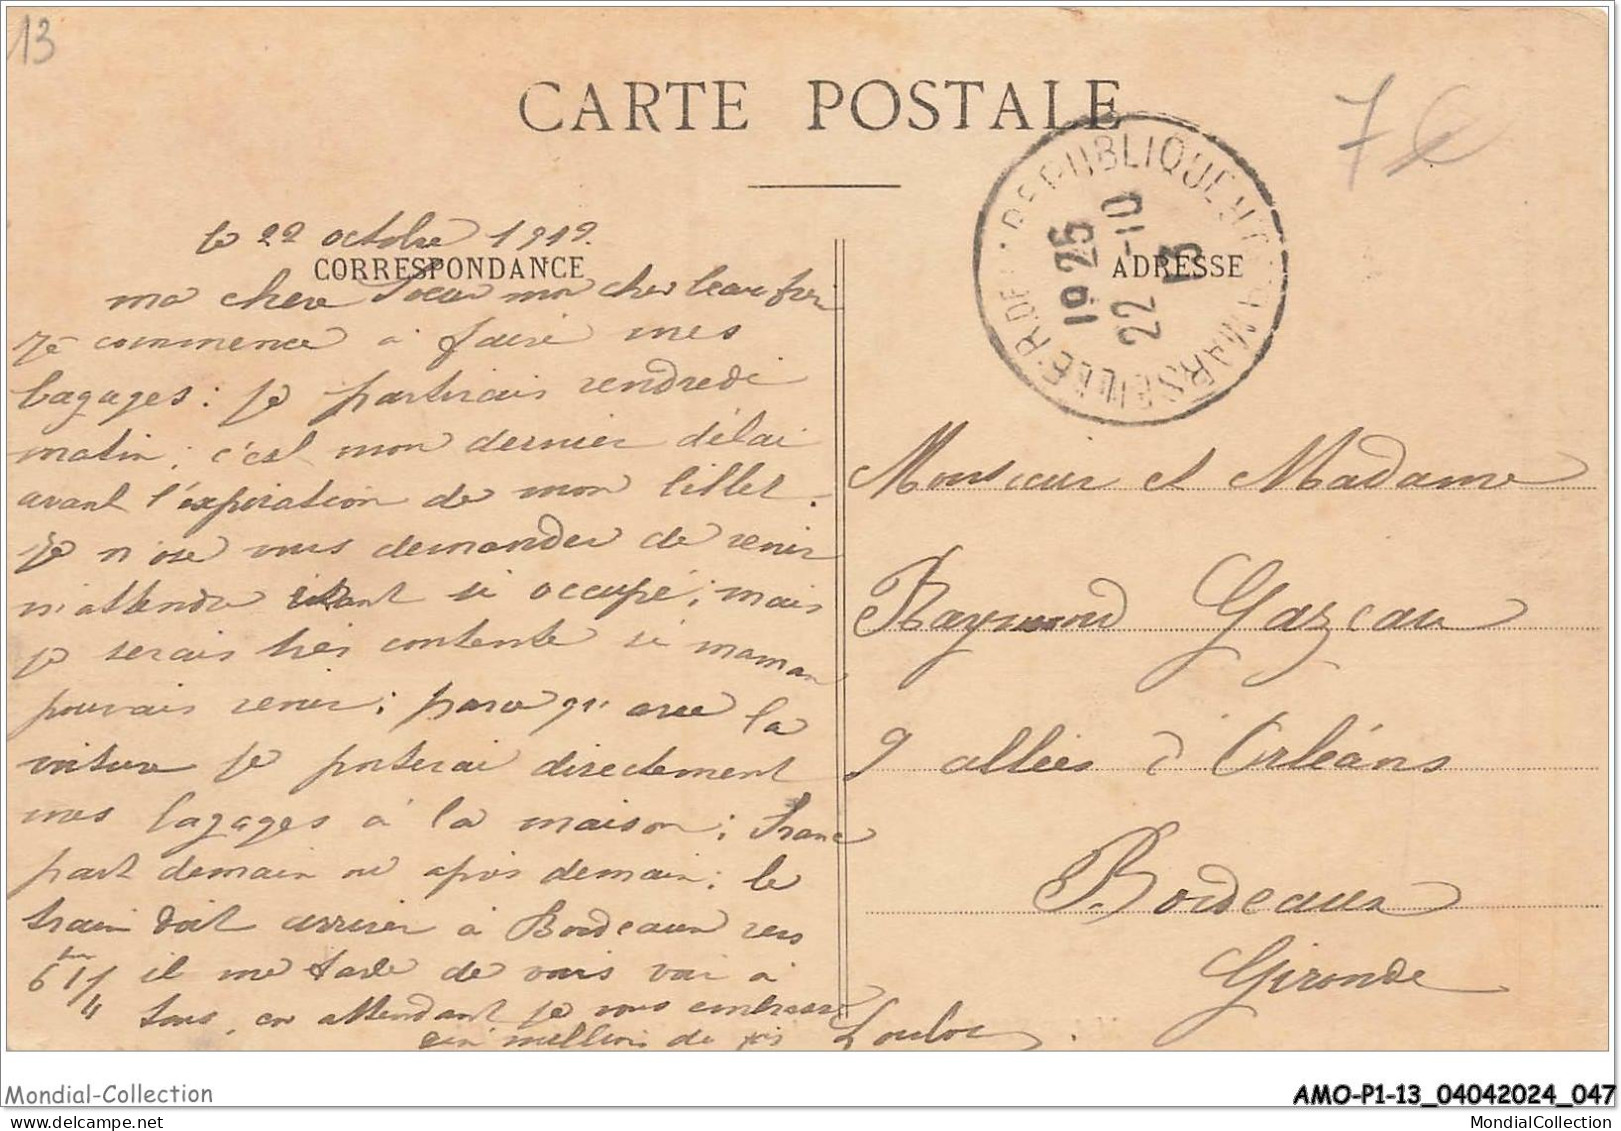 13
CARTE POSTALE
7€
R. DE LA REPUBLIQUE
MARSEILLE
19 25
22 -10
13
le 22 octobre 1919.
CORRESPONDANCE
ADRESSE
ma chere Soeur mon cher beau frère
Je commence à faire mes
bagages : je partirais vendredi
matin ; c'est mon dernier délai
avant l'expiration de mon billet.
Je n'ose vous demander de venir
m'attendre étant si occupé ; mais
je serais très contente si maman
pouvais venir ; parce qu' avec la
voiture je porterai directement
mes bagages à la maison ; Franc
part demain ou après demain ; le
train doit arriver à Bordeaux vers
6 h 1/4 il me tarde de vous voir à
tous, en attendant je vous embrasse
un million de fois Loulou.
Monsieur et Madame
Raymond Gazeau
9 allées d'Orléans
Bordeaux
Gironde
Mondial-Collection
AMO-P1-13_04042024_047
MondialCollection